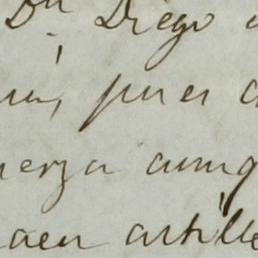 Dn Diego
pues
uerza aunq
aen artille